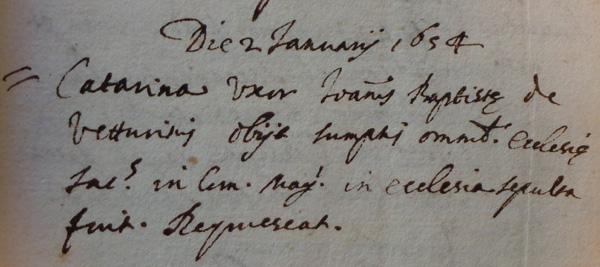 Die 2 Januarij 1654
Catarina Uxor Joānis Baptistę de
Vetturinis obijt sumptis omnib. Ecclesię
Sac.s in in ecclesia sepulta
fuit. Requiescat.